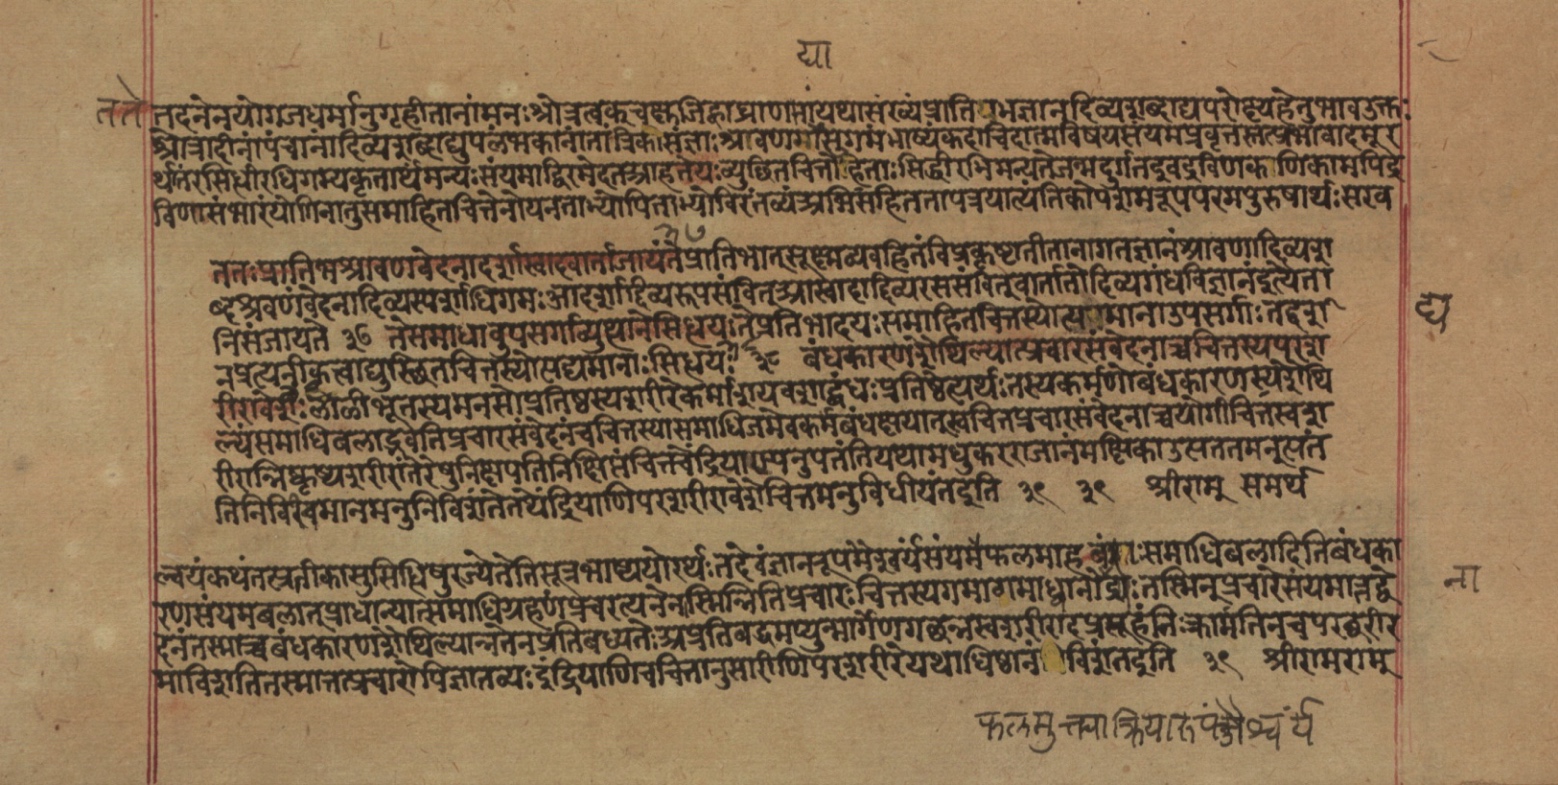 द्या
तते
तदनेनयोगजधर्मानुगृहीतानांमनःश्रोत्रत्वक्चक्षुजिह्वाघ्राणानांयथासंख्यंप्रातिभज्ञानदिव्यशब्दाद्यपरोक्ष्यहेतुभावउक्तः
श्रोत्रादीनांपंचानांदिव्यशब्दाद्युपलंभकानांतांत्रिकासंज्ञाःश्रावणमासुगमंभाष्यंकदाचिदात्मविषयसंयमप्रवृत्तस्तत्प्रभावादमूर
र्थांतरसिधीरधिगम्यकृतार्थंमन्यःसंयमाद्विरमेदतआहतेयःव्युछितचित्तोहिताःसिद्धीरभिमन्यतेजन्मदुर्गतइवद्रविणकणिकामपिद्र
विणासंभारंयोगिनातुसमाहितचित्तेनोपनताभ्योपिताभ्योविरंतव्यंअभिसंहिततापत्रयात्यंतिकोपशमरूपपरमपुरुषार्थःसखव
३७
ततःप्रातिभश्रावणवेदनादर्शास्वादवार्ताजायंतेप्रातिभात्सूक्ष्मव्यवहितंविप्रकृष्टातीतानागतज्ञानंश्रावणादिव्यश
ब्दश्रवणंवेदनादिव्यस्पर्शाधिगमःआदर्शाद्दिव्यरूपसंवित्आस्वादाद्दिव्यरससंवित्वार्तातोदिव्यगंधविज्ञानंइत्येता
निसंजायते ३७ तेसमाधावुपसर्गाव्युत्थानेसिधयःतेप्रतिभादयःसमाहितचित्तस्योत्पद्यमानाउपसर्गाःतद्दर्श
नप्रत्यनीकत्वाद्युस्छितचित्तस्योत्पद्यमानाःसिधयः ३८ बंधकारणशैथिल्यात्प्रचारसंवेदनाच्चचित्तस्यपरश
रीरावेशःलोलीभूतस्यमनसोप्रतिष्ठस्यशरीरेकर्माशयवशाद्बंधःप्रतिष्ठेत्यर्थःतस्यकर्मणोबंधकारणस्यशैथि
ल्यंसमाधिबलाद्भवतिप्रचारसंवेदनंचचित्तस्यासमाधिजमेवकर्मबंधक्षयात्स्वचित्तप्रचारसंवेदनाच्चयोगीचित्तंस्वश
रीरान्निष्कृष्यशरीरांतरेषुनिक्षपतिनिक्षिप्तंचित्तंचेंद्रियाण्यनुपतंतियथामधुकरराजानंमक्षिकाउत्पततमनूत्पतं
तिनिविशमानमनुनिविशंतेतथेंद्रियाणिपरशरीरावेशेचित्तमनुविधीयंतइति ३९ ३९ श्रीराम् समर्थ
द्य
ल्वयंकथंतत्प्रत्यनीकासुसिधिषुरज्येतेतिसूत्रभाष्ययोरर्थःतदेवंज्ञानरूपमैश्वर्यसंयमफलमाह बंधःसमाधिबलादितिबंधका
ना
रणसंयमबलात्प्राधान्यात्समाधिग्रहणंप्रचरत्यनेनास्मिन्नितिप्रचारःचित्तस्यगमागमाध्वानोनाड्यःतस्मिन्प्रचारेसंयमात्तद्वे
दनंतस्माच्चबंधकारणशैथिल्यान्नतेनप्रतिबध्यतेःअप्रतिबद्धमप्युन्मार्गेणगछन्नस्वशरीरादप्रत्यूहंनिःक्रामतिनचपरछरीर
माविशतितस्मात्तत्प्रचारोपिज्ञातव्यःइंद्रियाणिचचित्तानुसारीणिपरशरीरेयथाधिष्ठानं विशंतइति ३९ श्रीरामराम्
फलमुक्त्वाक्रियारूपंऐश्वर्य